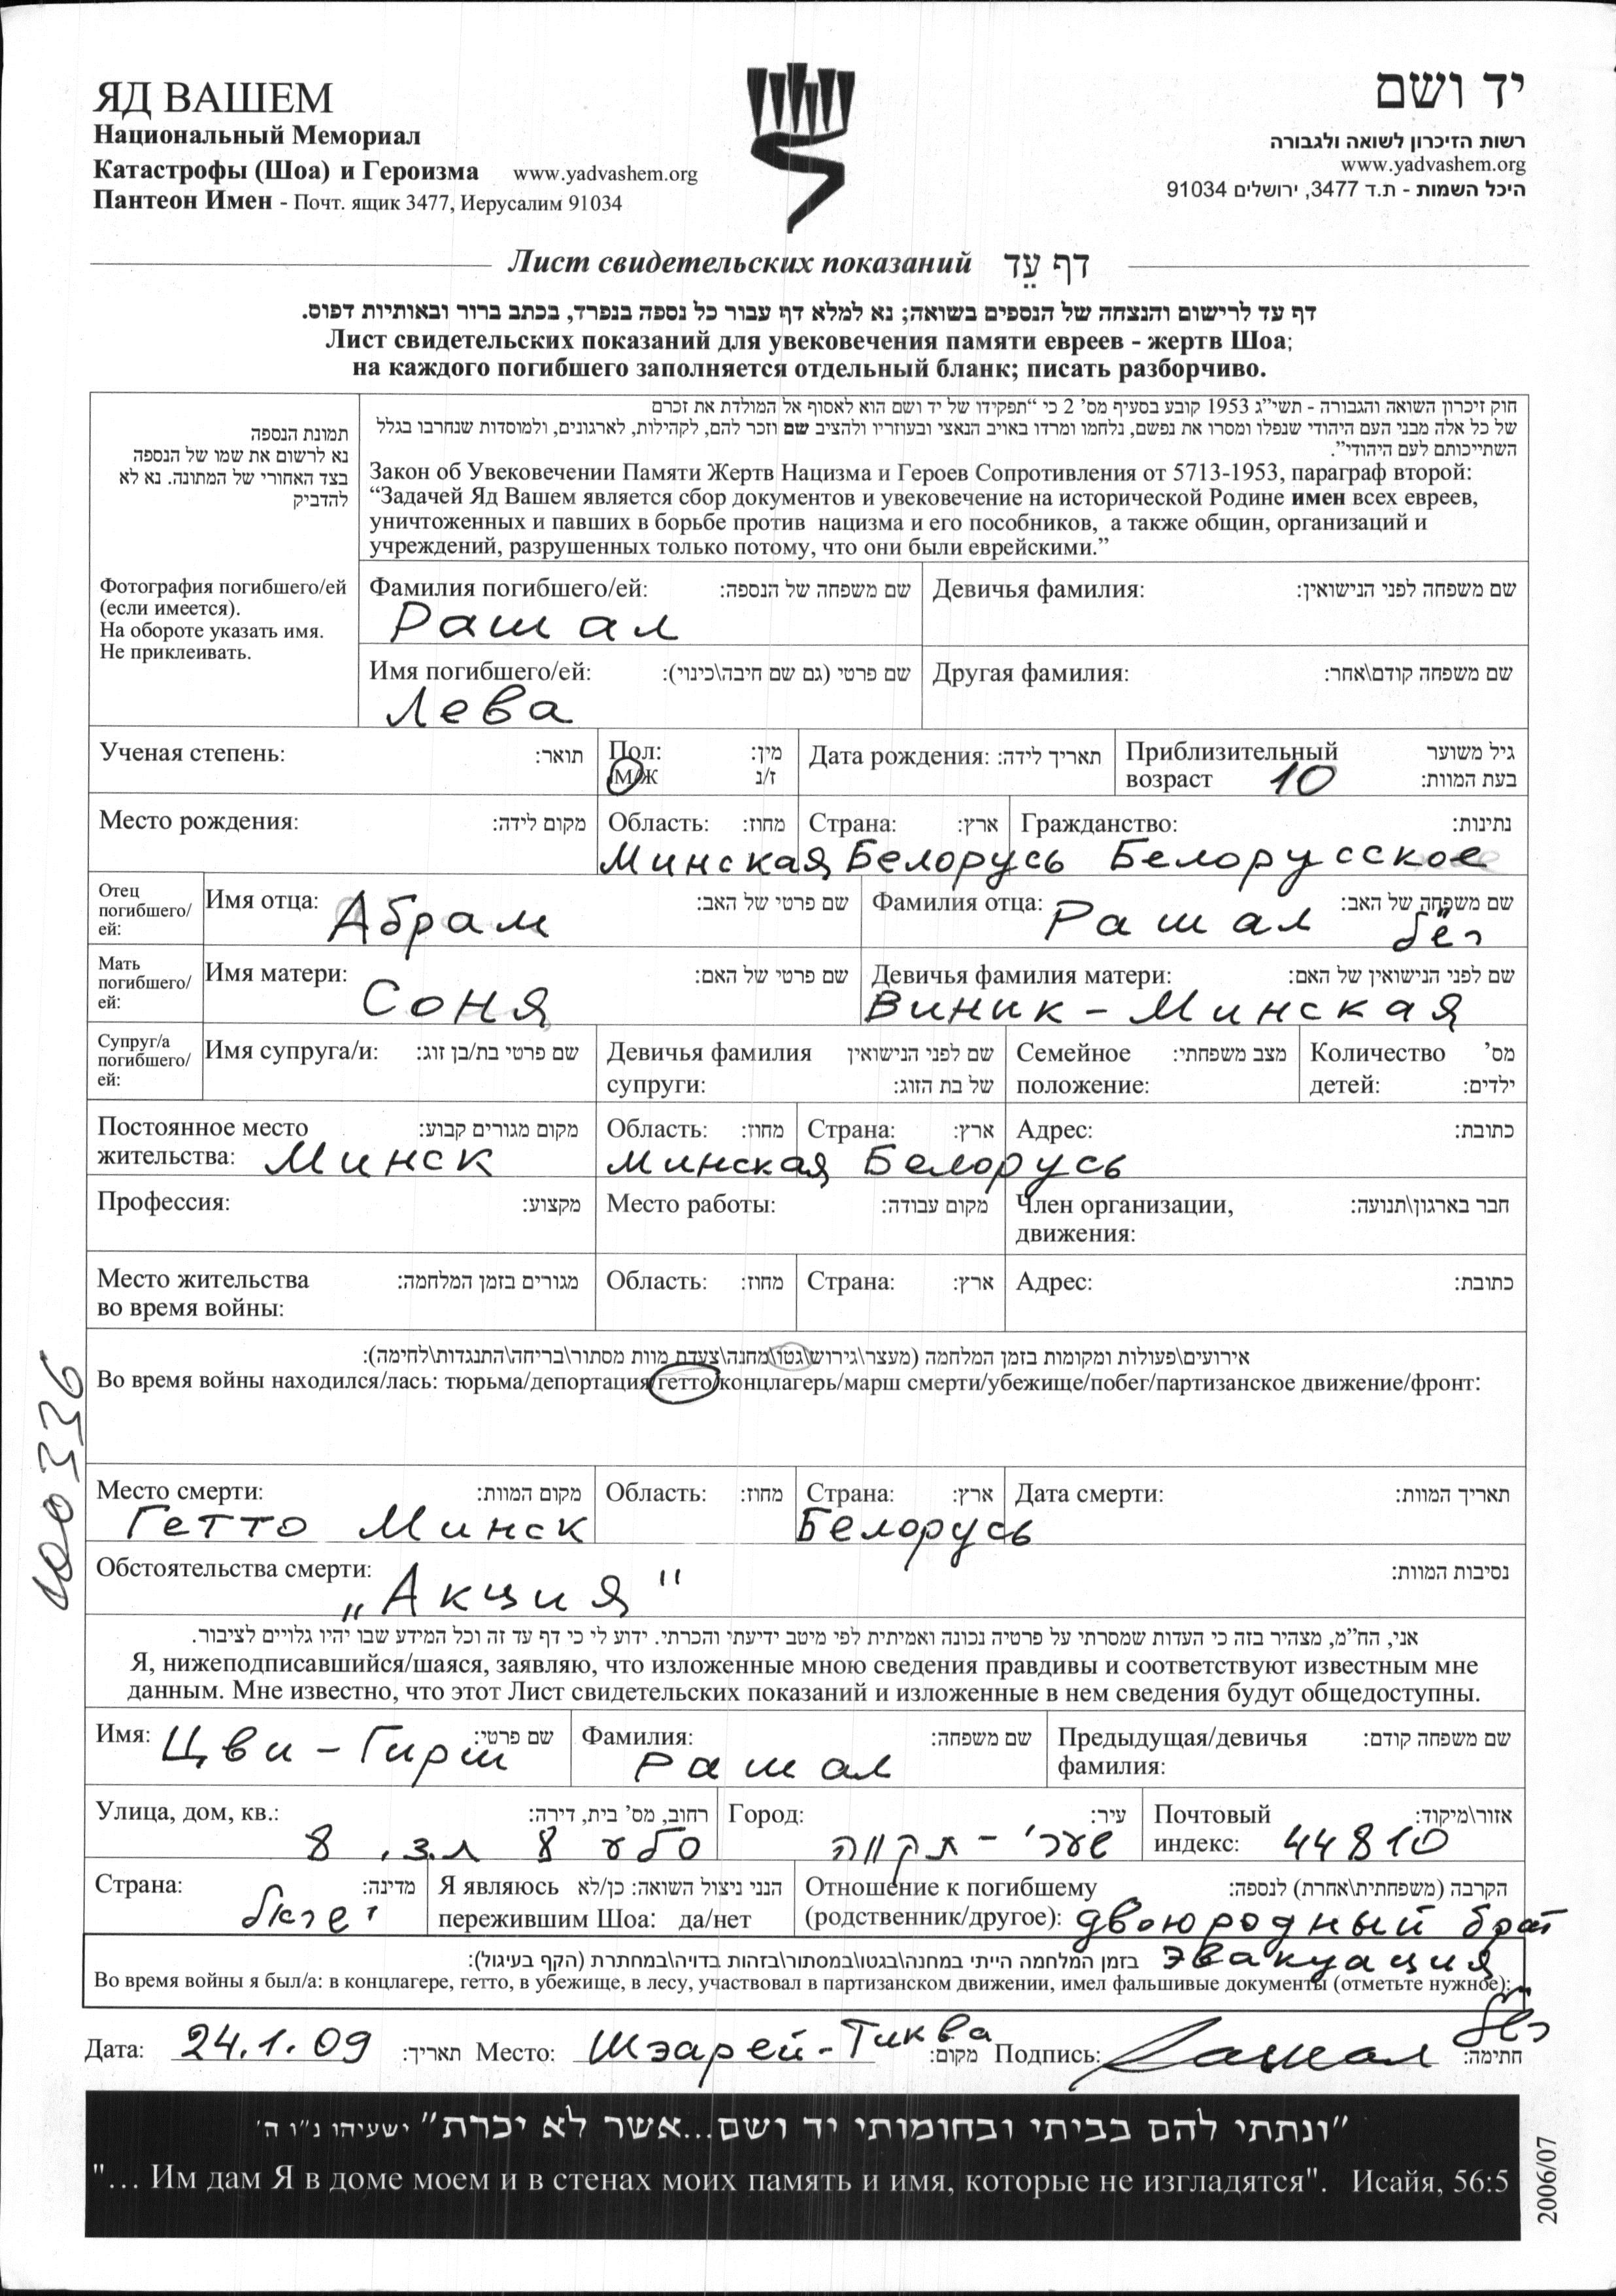 ЯД ВАШЕМ
Национальный Мемориал
Катастрофы (Шоа) и Героизма www.yadvashem.org
Пантеон Имен - Почт. ящик 3477, Иерусалим 91034
יד ושם
רשות הזיכרון לשואה ולגבורה
www.yadvashem.org
היכל השמות - ת.ד 3477, ירושלים 91034
Лист свидетельских показаний דף עֵד
דף עד לרישום והנצחה של הנספים בשואה; נא למלא דף עבור כל נספה בנפרד, בכתב ברור ובאותיות דפוס.
Лист свидетельских показаний для увековечения памяти евреев - жертв Шоа;
на каждого погибшего заполняется отдельный бланк; писать разборчиво.
תמונת הנספה
נא לרשום את שמו של הנספה
בצד האחורי של המתונה. נא לא
להדביק
Фотография погибшего/ей
(если имеется).
На обороте указать имя.
Не приклеивать.
חוק זיכרון השואה והגבורה - תשי"ג 1953 קובע בסעיף מס' 2 כי "תפקידו של יד ושם הוא לאסוף אל המולדת את זכרם
של כל אלה מבני העם היהודי שנפלו ומסרו את נפשם, נלחמו ומרדו באויב הנאצי ובעוזריו ולהציב שם וזכר להם, לקהילות, לארגונים, ולמוסדות שנחרבו בגלל
השתייכותם לעם היהודי".
Закон об Увековечении Памяти Жертв Нацизма и Героев Сопротивления от 5713-1953, параграф второй:
"Задачей Яд Вашем является сбор документов и увековечение на исторической Родине имен всех евреев,
уничтоженных и павших в борьбе против нацизма и его пособников, а также общин, организаций и
учреждений, разрушенных только потому, что они были еврейскими."
Фамилия погибшего/ей: שם משפחה של הנספה: Девичья фамилия: שם משפחה לפני הנישואין:
Рашал
Имя погибшего/ей: שם פרטי (גם שם חיבה\כינוי): Другая фамилия: שם משפחה קודם\אחר:
Лева
Ученая степень: תואר: Пол: מין: Дата рождения: תאריך לידה: Приблизительный גיל משוער
М/Ж ז/נ возраст 10 בעת המוות:
Место рождения: מקום לידה: Область: מחוז: Страна: ארץ: Гражданство: נתינות:
Минская Белорусь Белорусское
Отец
погибшего/
ей:
Имя отца: Абрам שם פרטי של האב: Фамилия отца: Рашал שם משפחה של האב:
Мать
погибшего/
ей:
Имя матери: שם פרטי של האם: Девичья фамилия матери: שם לפני הנישואין של האם:
Соня Виник-Минская
Супруг/а
погибшего/
ей:
Имя супруга/и: שם פרטי בת/בן זוג: Девичья фамилия שם לפני הנישואין Семейное מצב משפחתי: Количество מס'
супруги: של בת הזוג: положение: детей: ילדים:
Постоянное место מקום מגורים קבוע: Область: מחוז: Страна: ארץ: Адрес: כתובת:
жительства: Минск Минская Белорусь
Профессия: מקצוע: Место работы: מקום עבודה: Член организации, חבר בארגון\תנועה:
движения:
Место жительства מגורים בזמן המלחמה: Область: מחוז: Страна: ארץ: Адрес: כתובת:
во время войны:
אירועים\פעולות ומקומות בזמן המלחמה (מעצר\גירוש\גטו\מחנה\צעדת מוות מסתור\בריחה\התנגדות\לחימה):
Во время войны находился/лась: тюрьма/депортация/гетто/концлагерь/марш смерти/убежище/побег/партизанское движение/фронт:
100336
Место смерти: מקום המוות: Область: מחוז: Страна: ארץ: Дата смерти: תאריך המוות:
Гетто Минск Белорусь
Обстоятельства смерти: נסיבות המוות:
„Акция"
אני, הח"מ, מצהיר בזה כי העדות שמסרתי על פרטיה נכונה ואמיתית לפי מיטב ידיעתי והכרתי. ידוע לי כי דף עד זה וכל המידע שבו יהיו גלויים לציבור.
Я, нижеподписавшийся/шаяся, заявляю, что изложенные мною сведения правдивы и соответствуют известным мне
данным. Мне известно, что этот Лист свидетельских показаний и изложенные в нем сведения будут общедоступны.
Имя: Цви-Гирш שם פרטי: Фамилия: שם משפחה: Предыдущая/девичья שם משפחה קודם:
Рашал фамилия:
Улица, дом, кв.: רחוב, מס' בית, דירה: Город: עיר: Почтовый אזור\מיקוד:
סלע 8 ת.ז. 8 שערי-תקווה индекс: 44810
Страна: מדינה: Я являюсь הנני ניצול השואה: כן/לא Отношение к погибшему הקרבה (משפחתית\אחרת) לנספה:
пережившим Шоа: да/нет (родственник/другое): двоюродный брат
בזמן המלחמה הייתי במחנה\בגטו\במסתור\בזהות בדויה\במחתרת (הקף בעיגול): эвакуация
Во время войны я был/а: в концлагере, гетто, в убежище, в лесу, участвовал в партизанском движении, имел фальшивые документы (отметьте нужное):
Дата: 24.1.09 תאריך: Место: Шэарей-Тиква מקום: Подпись: Рашал חתימה:
"ונתתי להם בביתי ובחומותי יד ושם...אשר לא יכרת" ישעיהו נ"ו ה'
"... Им дам Я в доме моем и в стенах моих память и имя, которые не изгладятся". Исайя, 56:5
2006/07